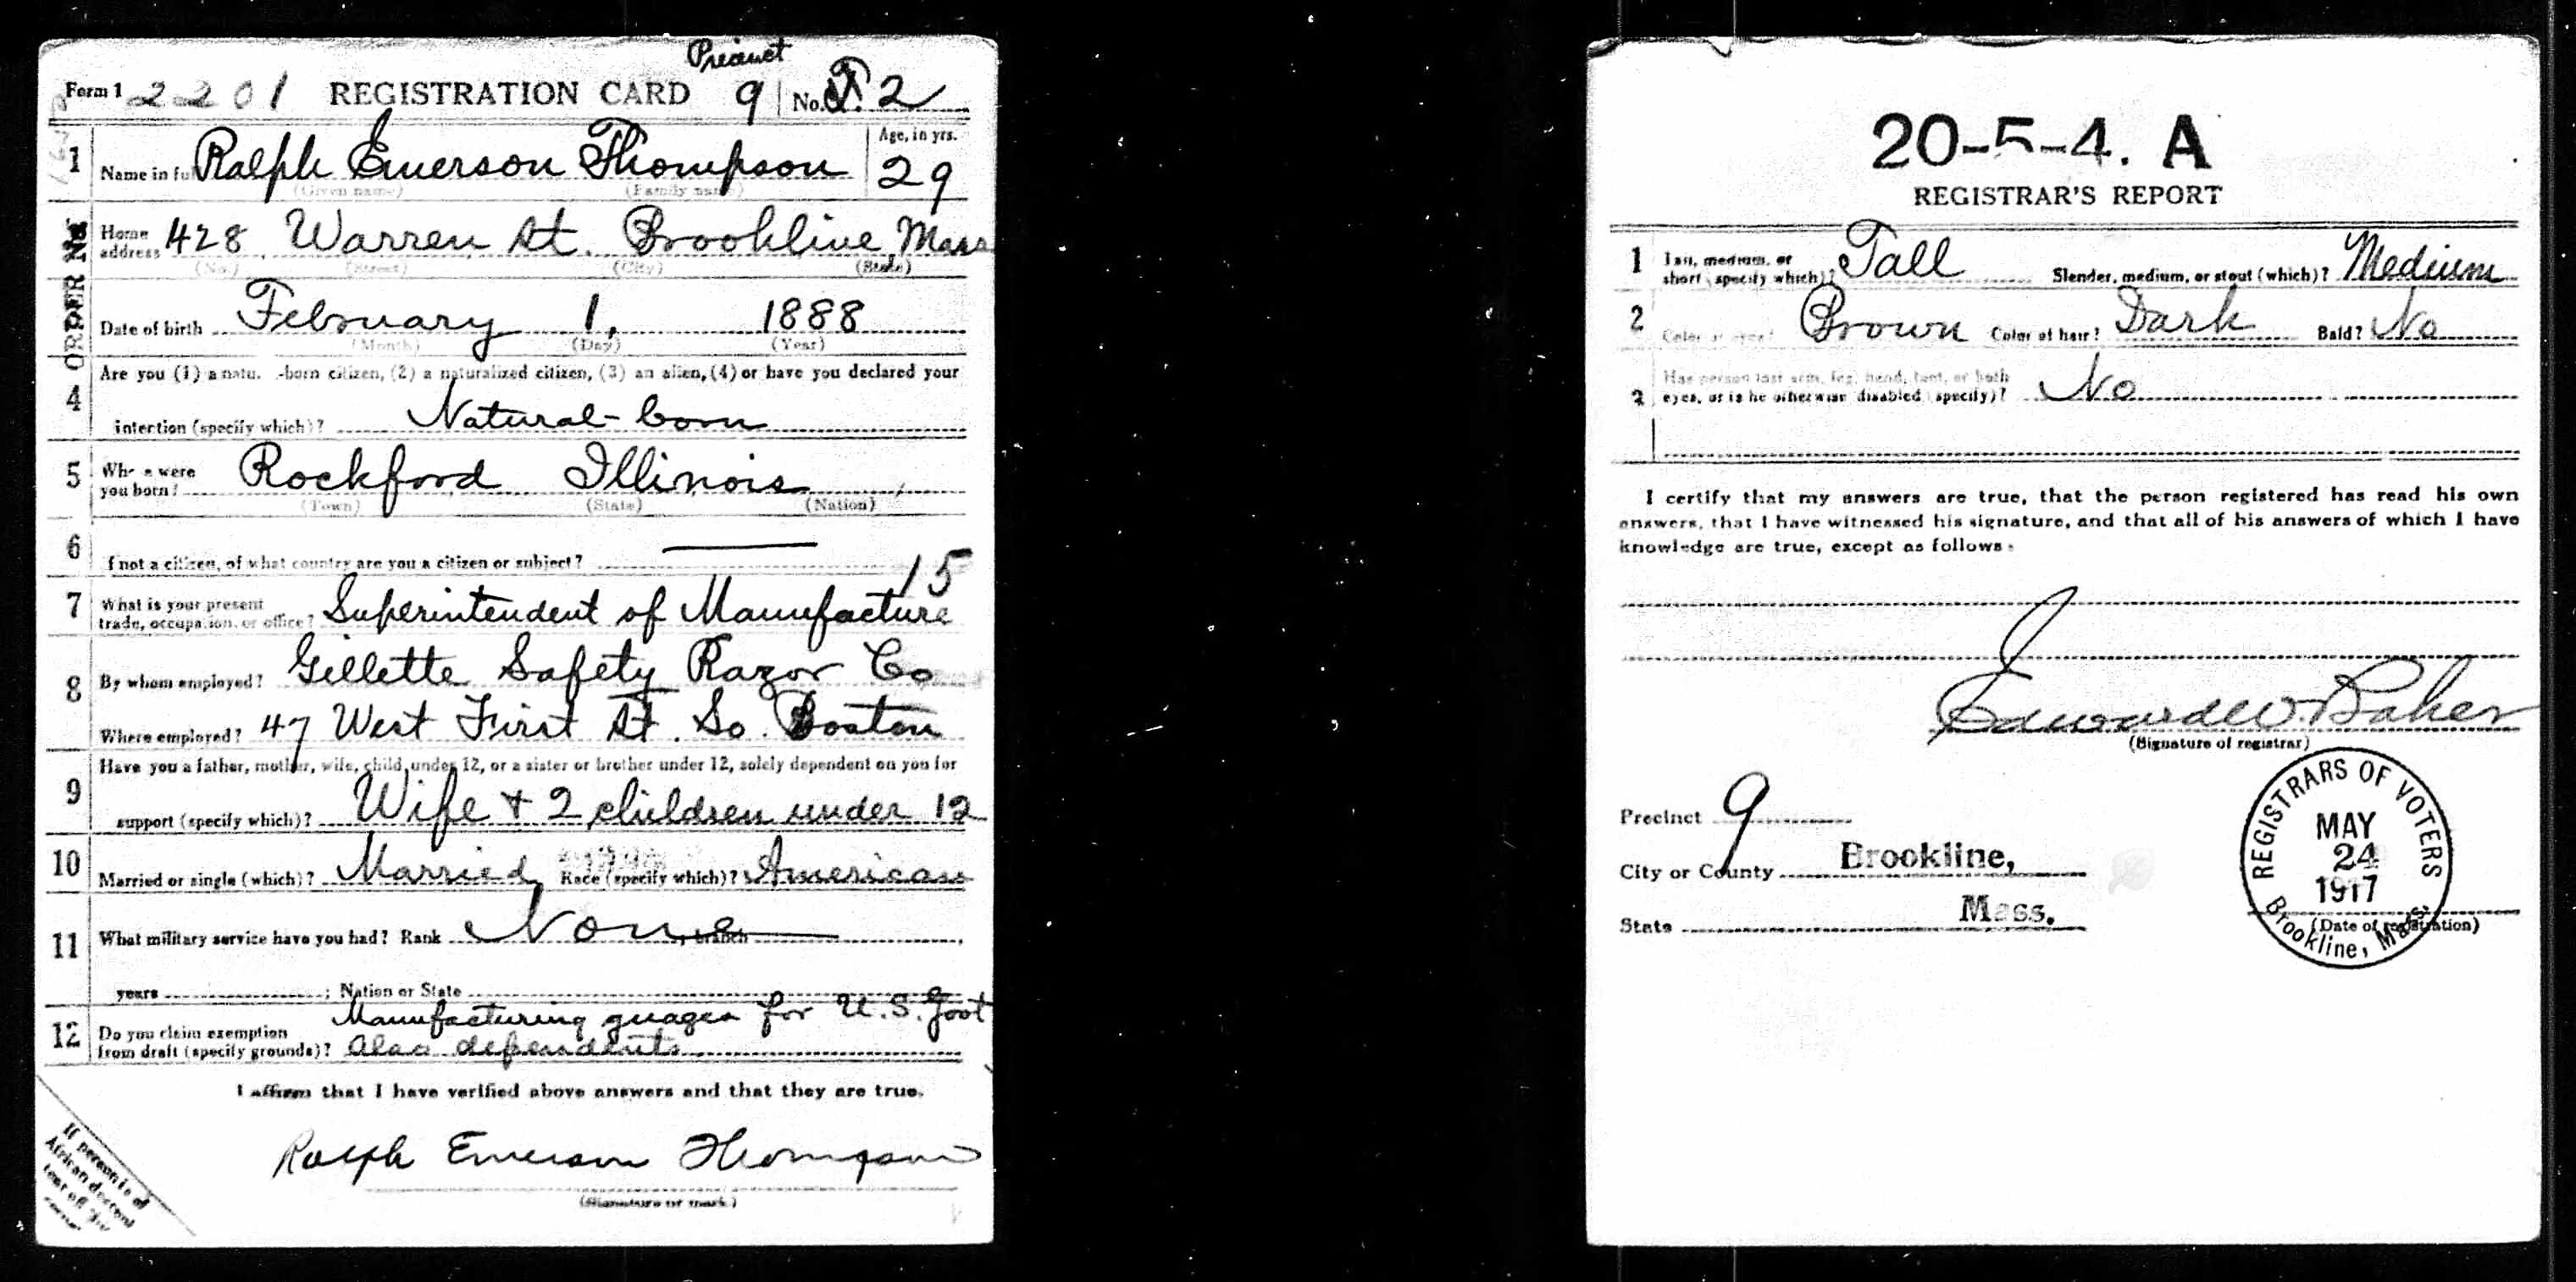 Precinct
Form 1 2201 REGISTRATION CARD 9 No. T. 2
1 Name in ful Ralph Emerson Thompson Age, in yrs. 29
(Given name) (Family name)
ORDER No.
Home address 428 Warren St. Brookline Mass
(No.) (Street) (City) (State)
Date of birth February 1, 1888
(Month) (Day) (Year)
4 Are you (1) a natu. -born citizen, (2) a naturalized citizen, (3) an alien, (4) or have you declared your
intention (specify which)? Natural-born
5 Whe e were you born? Rockford Illinois
(Town) (State) (Nation)
6 f not a citizen, of what country are you a citizen or subject?
15
7 What is your present trade, occupation, or office? Superintendent of Manufacture
8 By whom employed? Gillette Safety Razor Co
Where employed? 47 West First St. So. Boston
9 Have you a father, mother, wife, child under 12, or a sister or brother under 12, solely dependent on you for
support (specify which)? Wife + 2 children under 12
10 Married or single (which)? Married Race (specify which)? American
11 What military service have you had? Rank None branch
years ; Nation or State
12 Do you claim exemption from draft (specify grounds)? Manufacturing guages for U.S. Govt
Also dependents
I affirm that I have verified above answers and that they are true.
Ralph Emerson Thompson
(Signature or mark)
If person is of
African descent
tear off this
corner
20-5-4. A
REGISTRAR'S REPORT
1 Tall, medium, or short (specify which)? Tall Slender, medium, or stout (which)? Medium
2 Color of eyes? Brown Color of hair? Dark Bald? No
3 Has person lost arm, leg, hand, foot, or both
eyes, or is he otherwise disabled (specify)? No
I certify that my answers are true, that the person registered has read his own
answers, that I have witnessed his signature, and that all of his answers of which I have
knowledge are true, except as follows:
Edward W. Baker
(Signature of registrar)
Precinct 9
City or County Brookline,
State Mass.
REGISTRARS OF VOTERS
MAY
24
1917
Brookline, Mass.
(Date of registration)